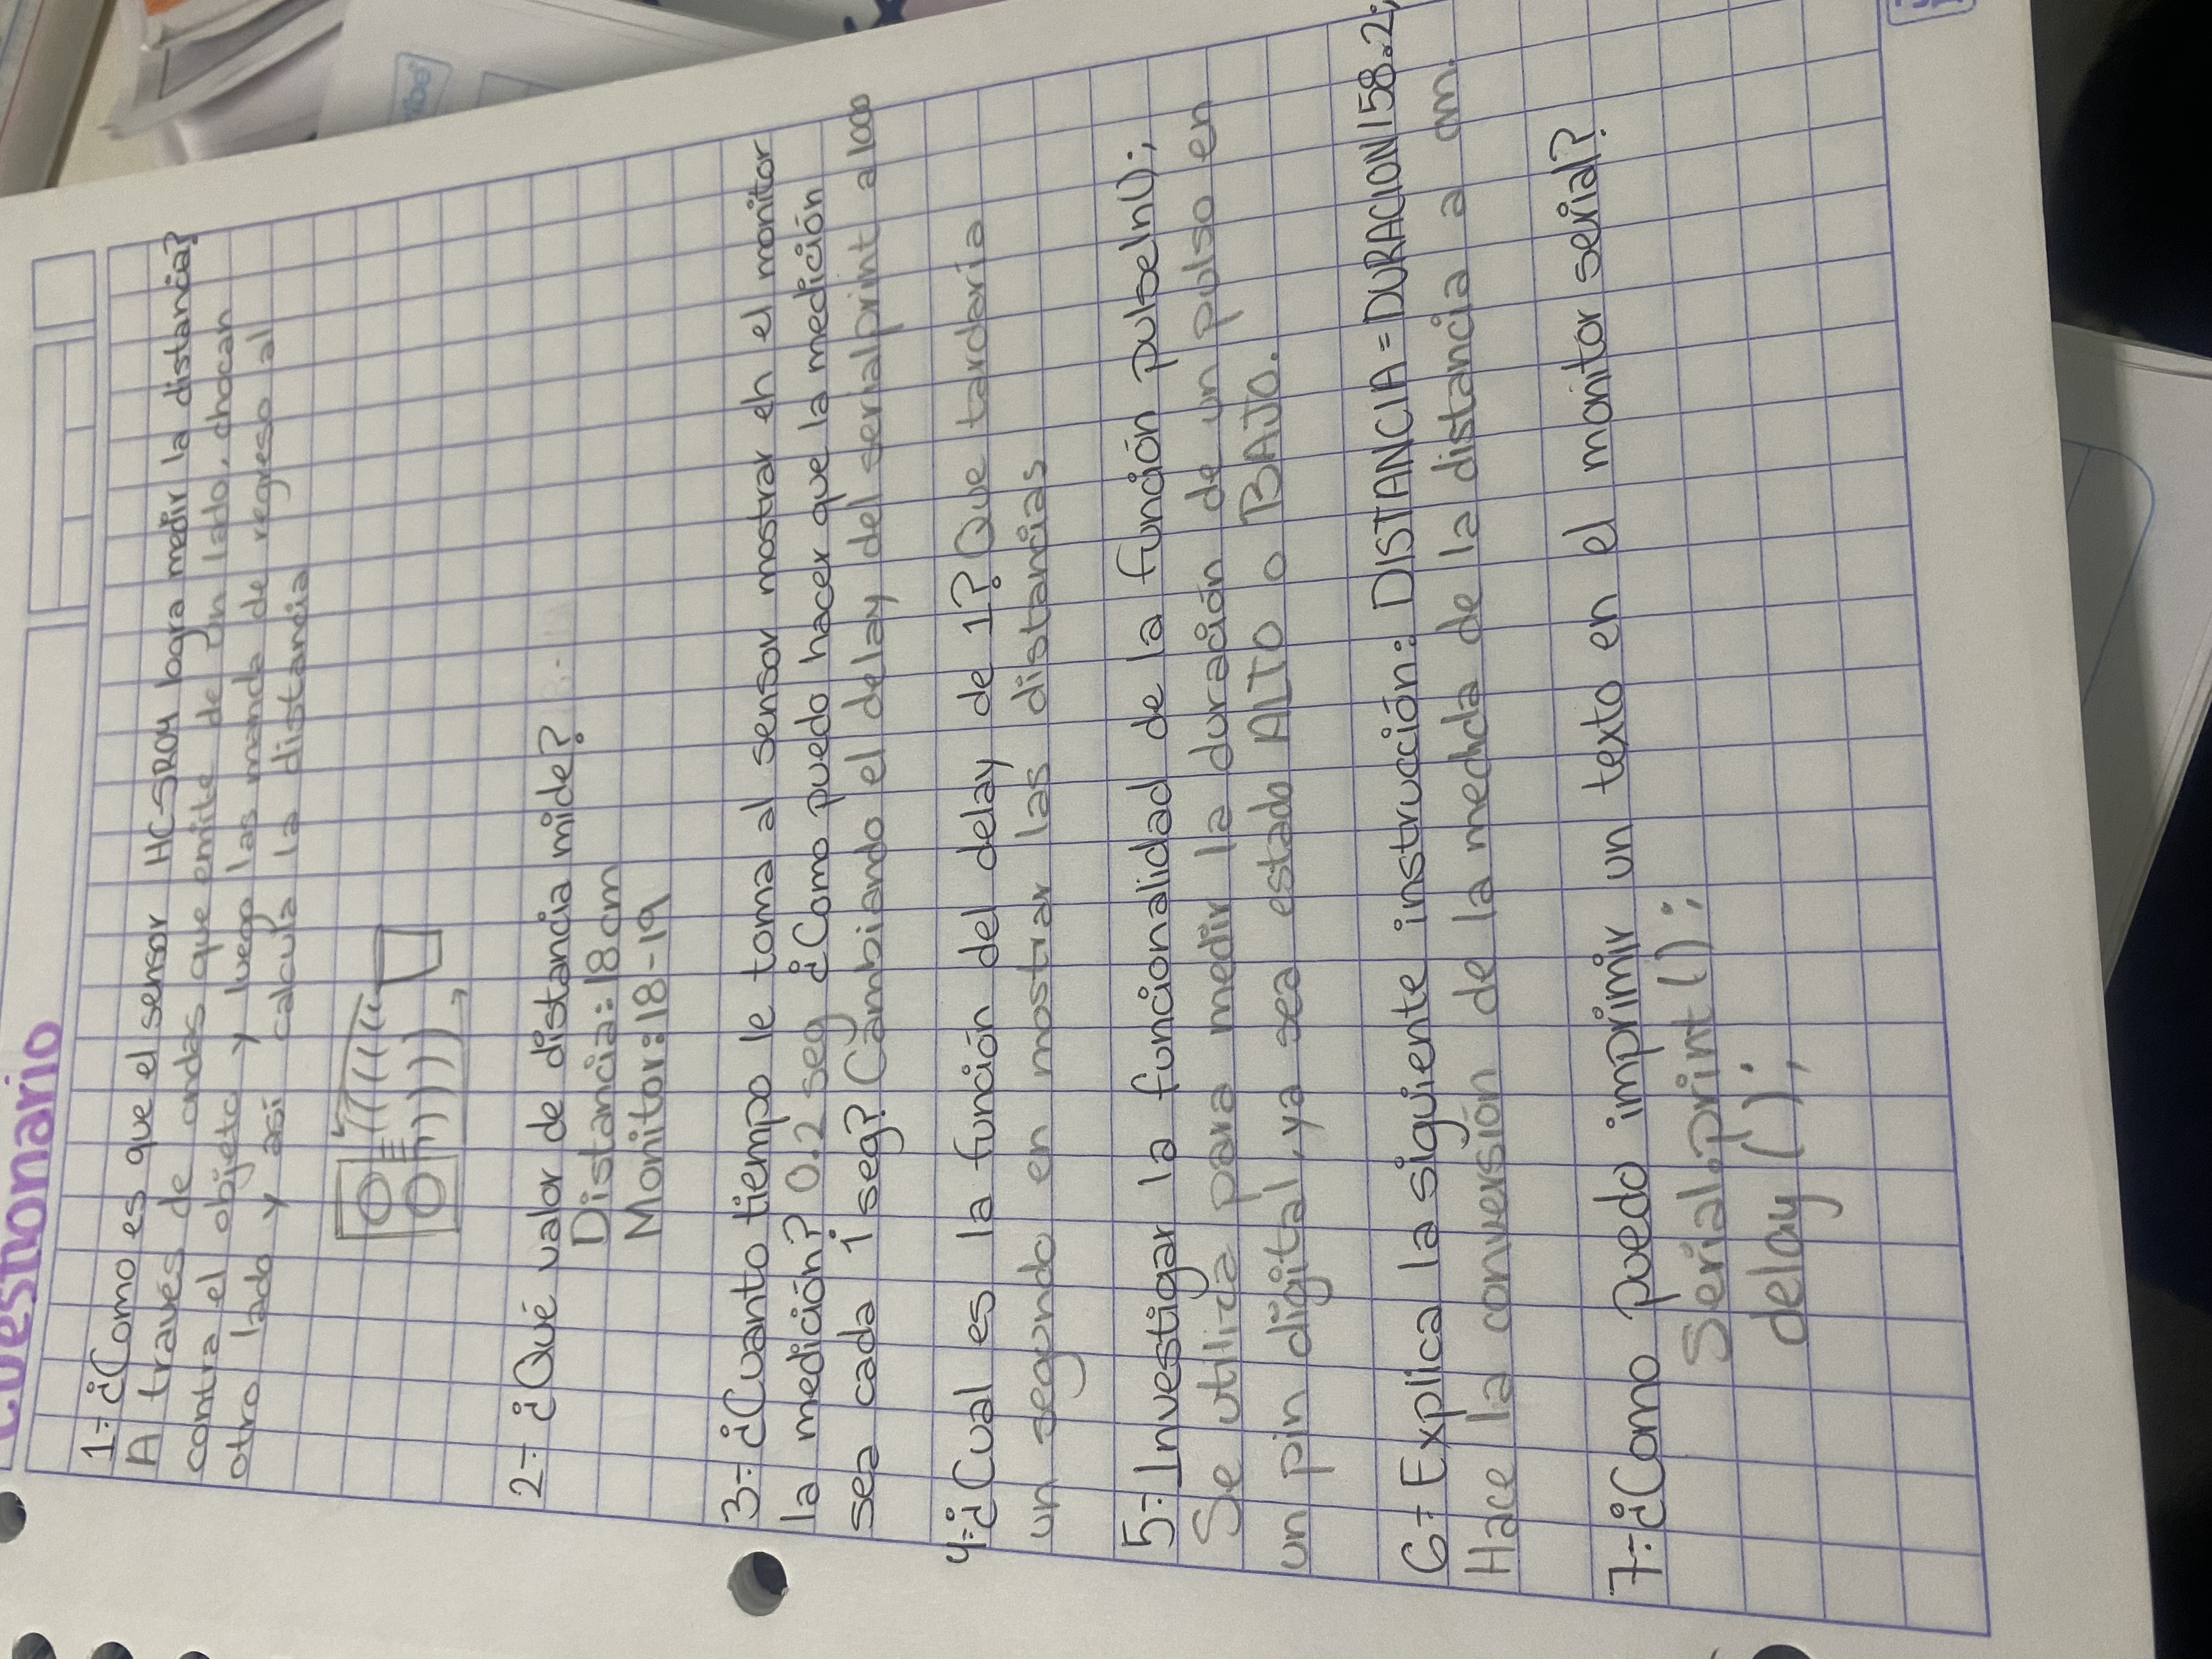 Cuestionario
1.- ¿Como es que el sensor HC-SR04 logra medir la distancia?
A través de ondas que emite de un lado, chocan
contra el objeto y luego las manda de regreso al
otro lado y así calcula la distancia
2.- ¿Qué valor de distancia mide?
Distancia: 18 cm
Monitor: 18-19
3.- ¿Cuanto tiempo le toma al sensor mostrar en el monitor
la medición? 0.2 seg ¿Como puedo hacer que la medición
sea cada 1 seg? Cambiando el delay del serialprint a 1000
4.- ¿Cual es la función del delay de 1? Que tardaría
un segundo en mostrar las distancias
5.- Investigar la funcionalidad de la función pulseIn();
Se utiliza para medir la duración de un pulso en
un pin digital, ya sea estado ALTO o BAJO.
6.- Explica la siguiente instrucción: DISTANCIA = DURACION/58.2;
Hace la conversión de la medida de la distancia a cm.
7.- ¿Como puedo imprimir un texto en el monitor serial?
Serial.print();
delay();